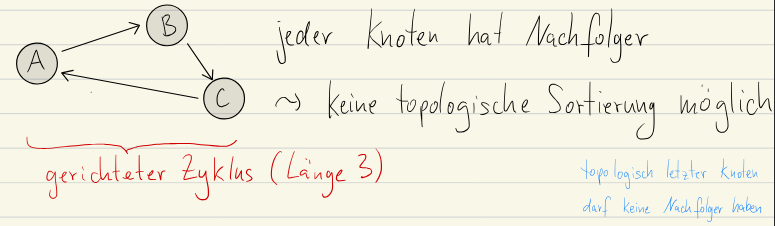 A
B
C
jeder Knoten hat Nachfolger
⤳ keine topologische Sortierung möglich
gerichteter Zyklus (Länge 3)
topologisch letzter Knoten
darf keine Nachfolger haben